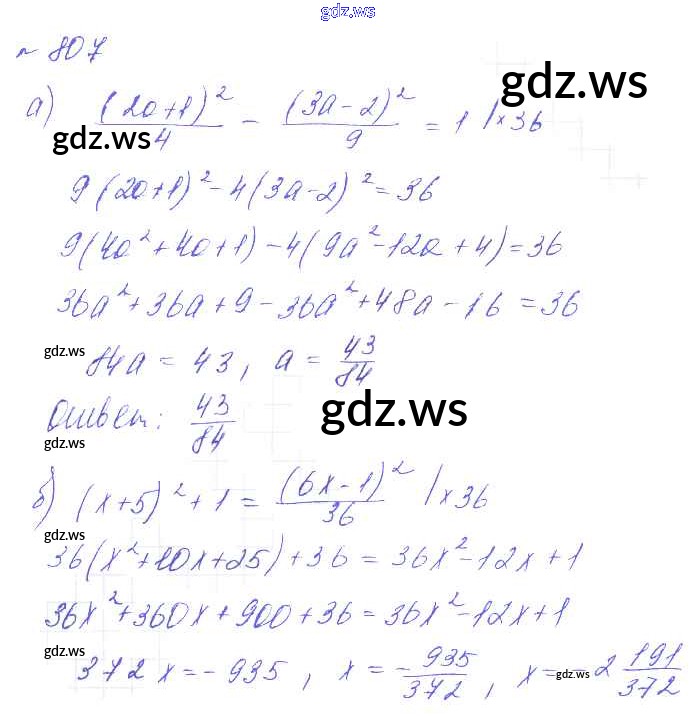 gdz.ws
№ 807
gdz.ws
а) (2a+1)²/4 - (3a-2)²/9 = 1 |×36
gdz.ws
9(2a+1)² - 4(3a-2)² = 36
9(4a²+4a+1) - 4(9a²-12a+4) = 36
36a²+36a+9-36a²+48a-16 = 36
gdz.ws
84a = 43, a = 43/84
gdz.ws
Ответ: 43/84
gdz.ws
б) (x+5)²+1 = (6x-1)²/36 |×36
gdz.ws
36(x²+10x+25)+36 = 36x²-12x+1
36x²+360x+900+36 = 36x²-12x+1
gdz.ws
372x = -935, x = -935/372, x = -2 191/372
gdz.ws